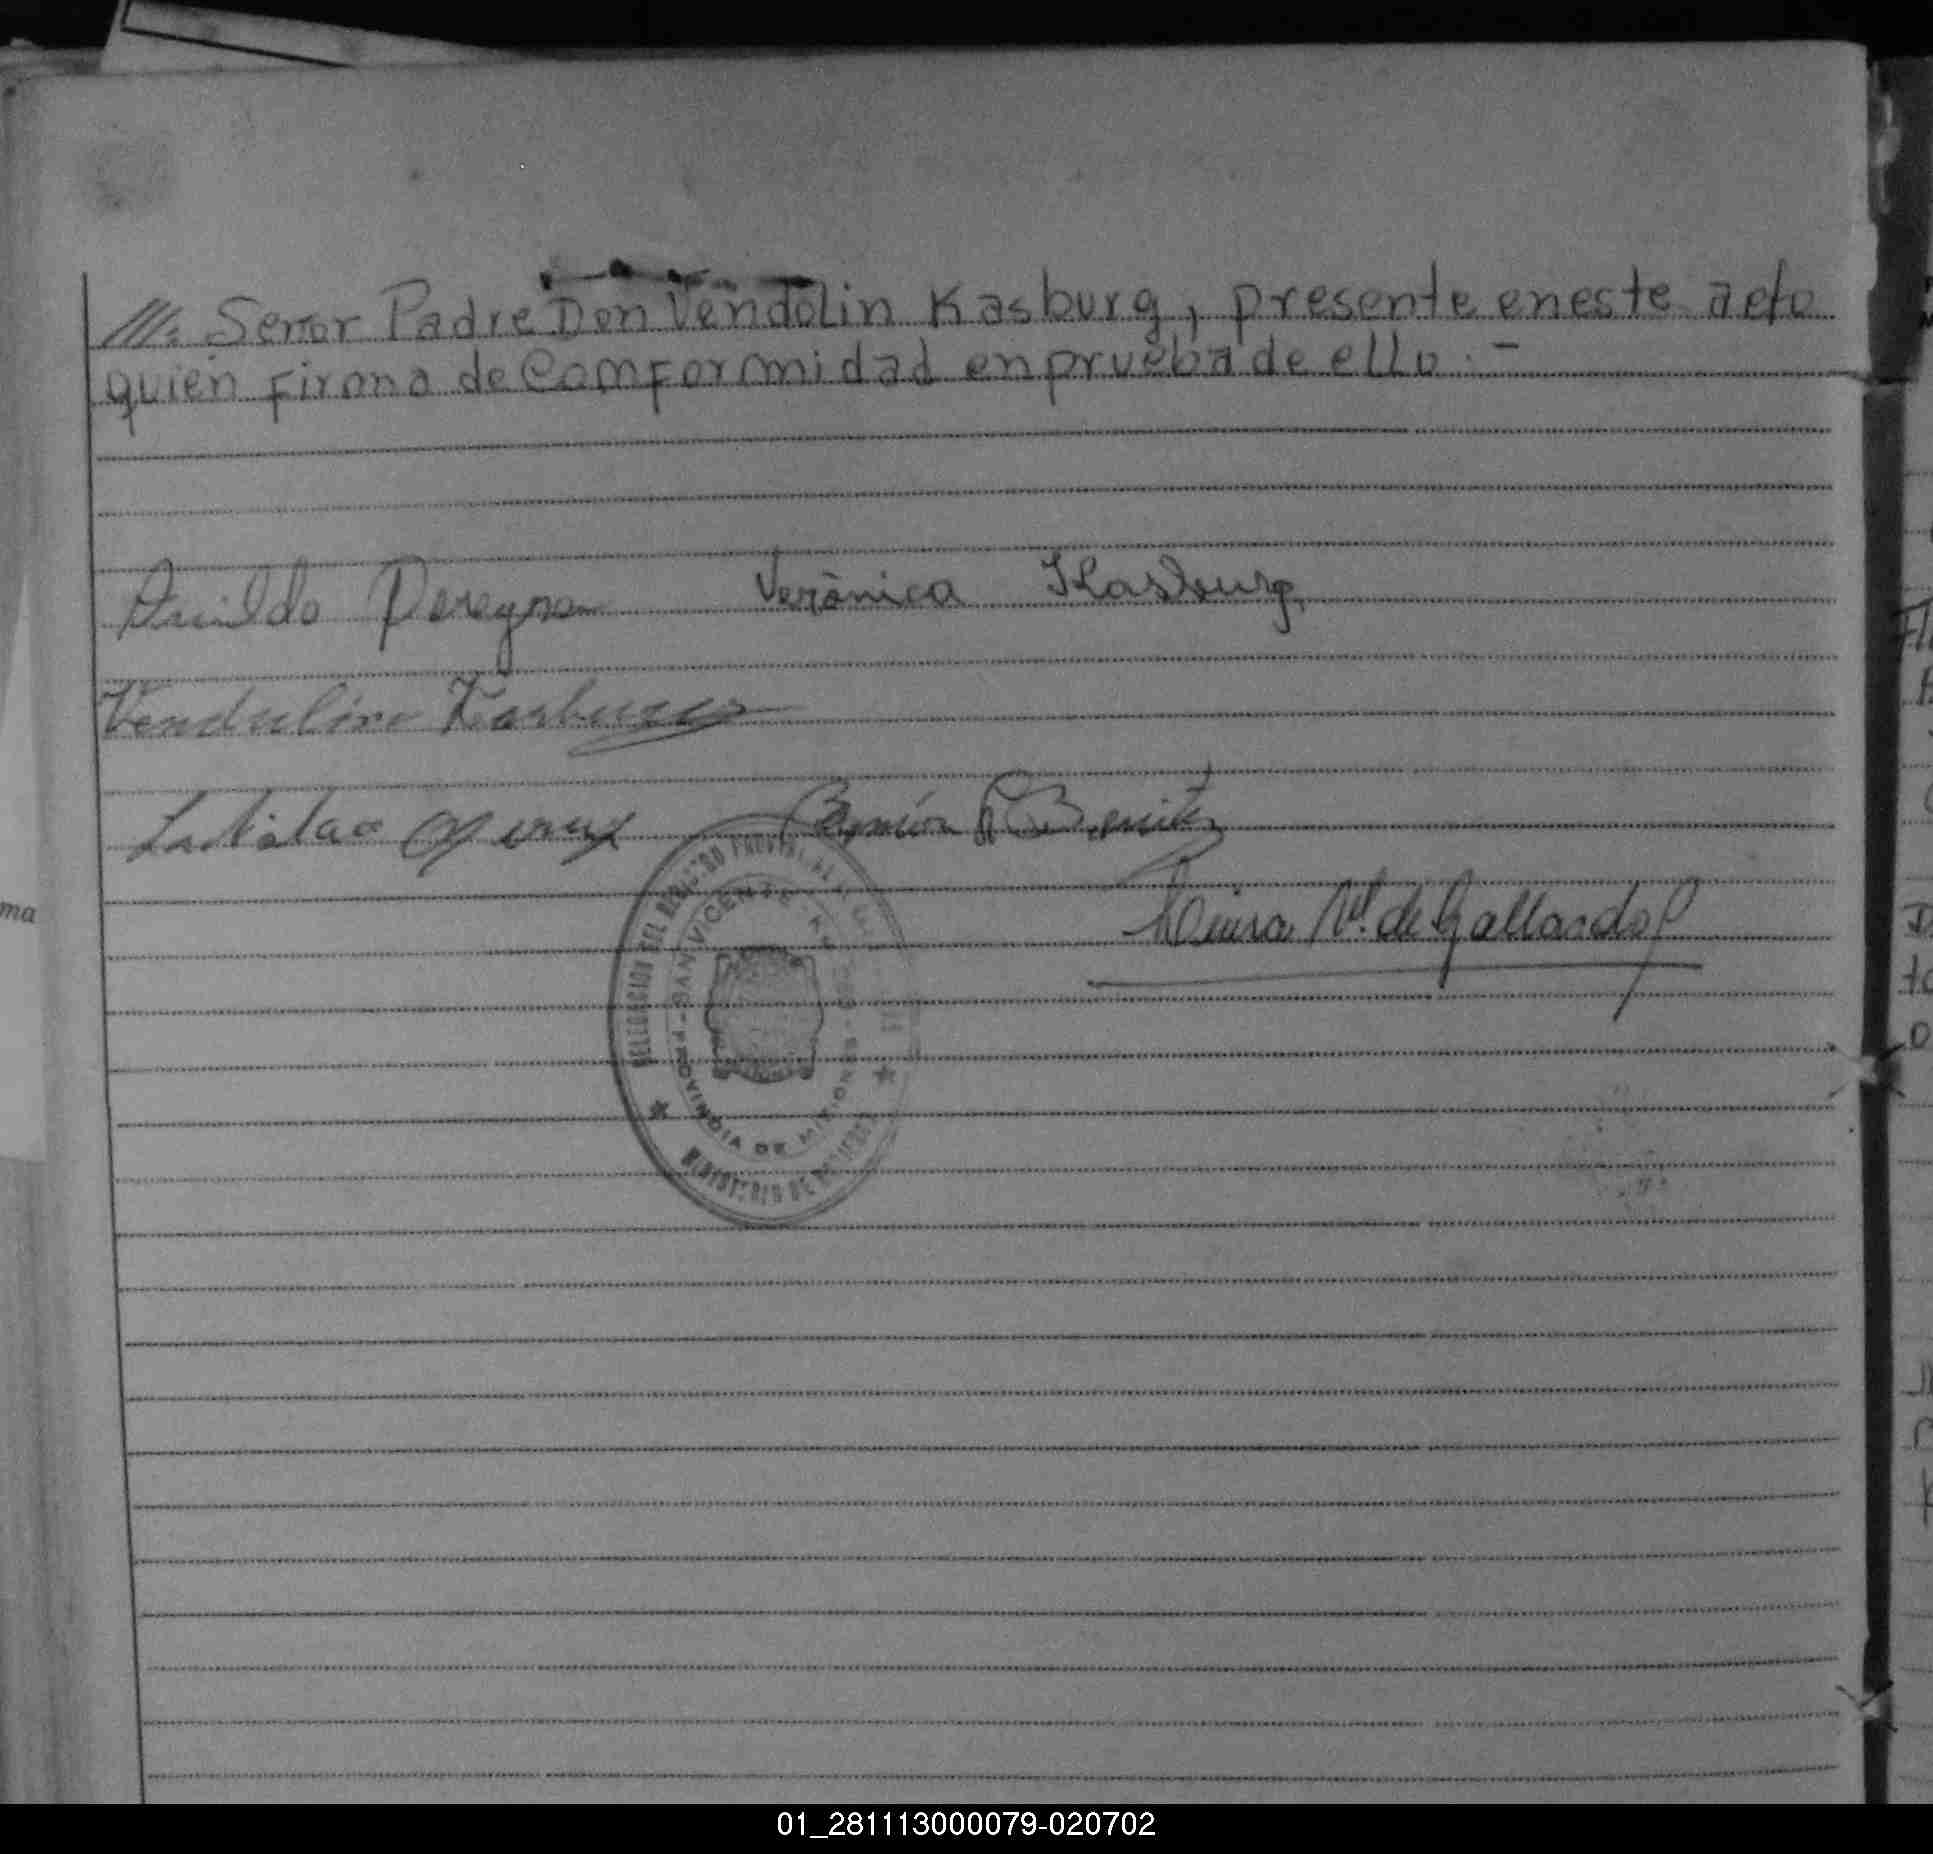 ///. Señor Padre Don Vendolin Kasburg, presente eneste acto
quien Firma de Comformidad enprueba de ello. -
Pereyra Verónica Kasburg
Vendulino Kasburg
Ladislao Ramón Benitez
de Gallardo
DELEGACION DEL REGISTRO PROVINCIAL DE LAS
SAN VICENTE
PROVINCIA DE MISIONES
MINISTERIO DE GOBIERNO
ma
01_281113000079-020702